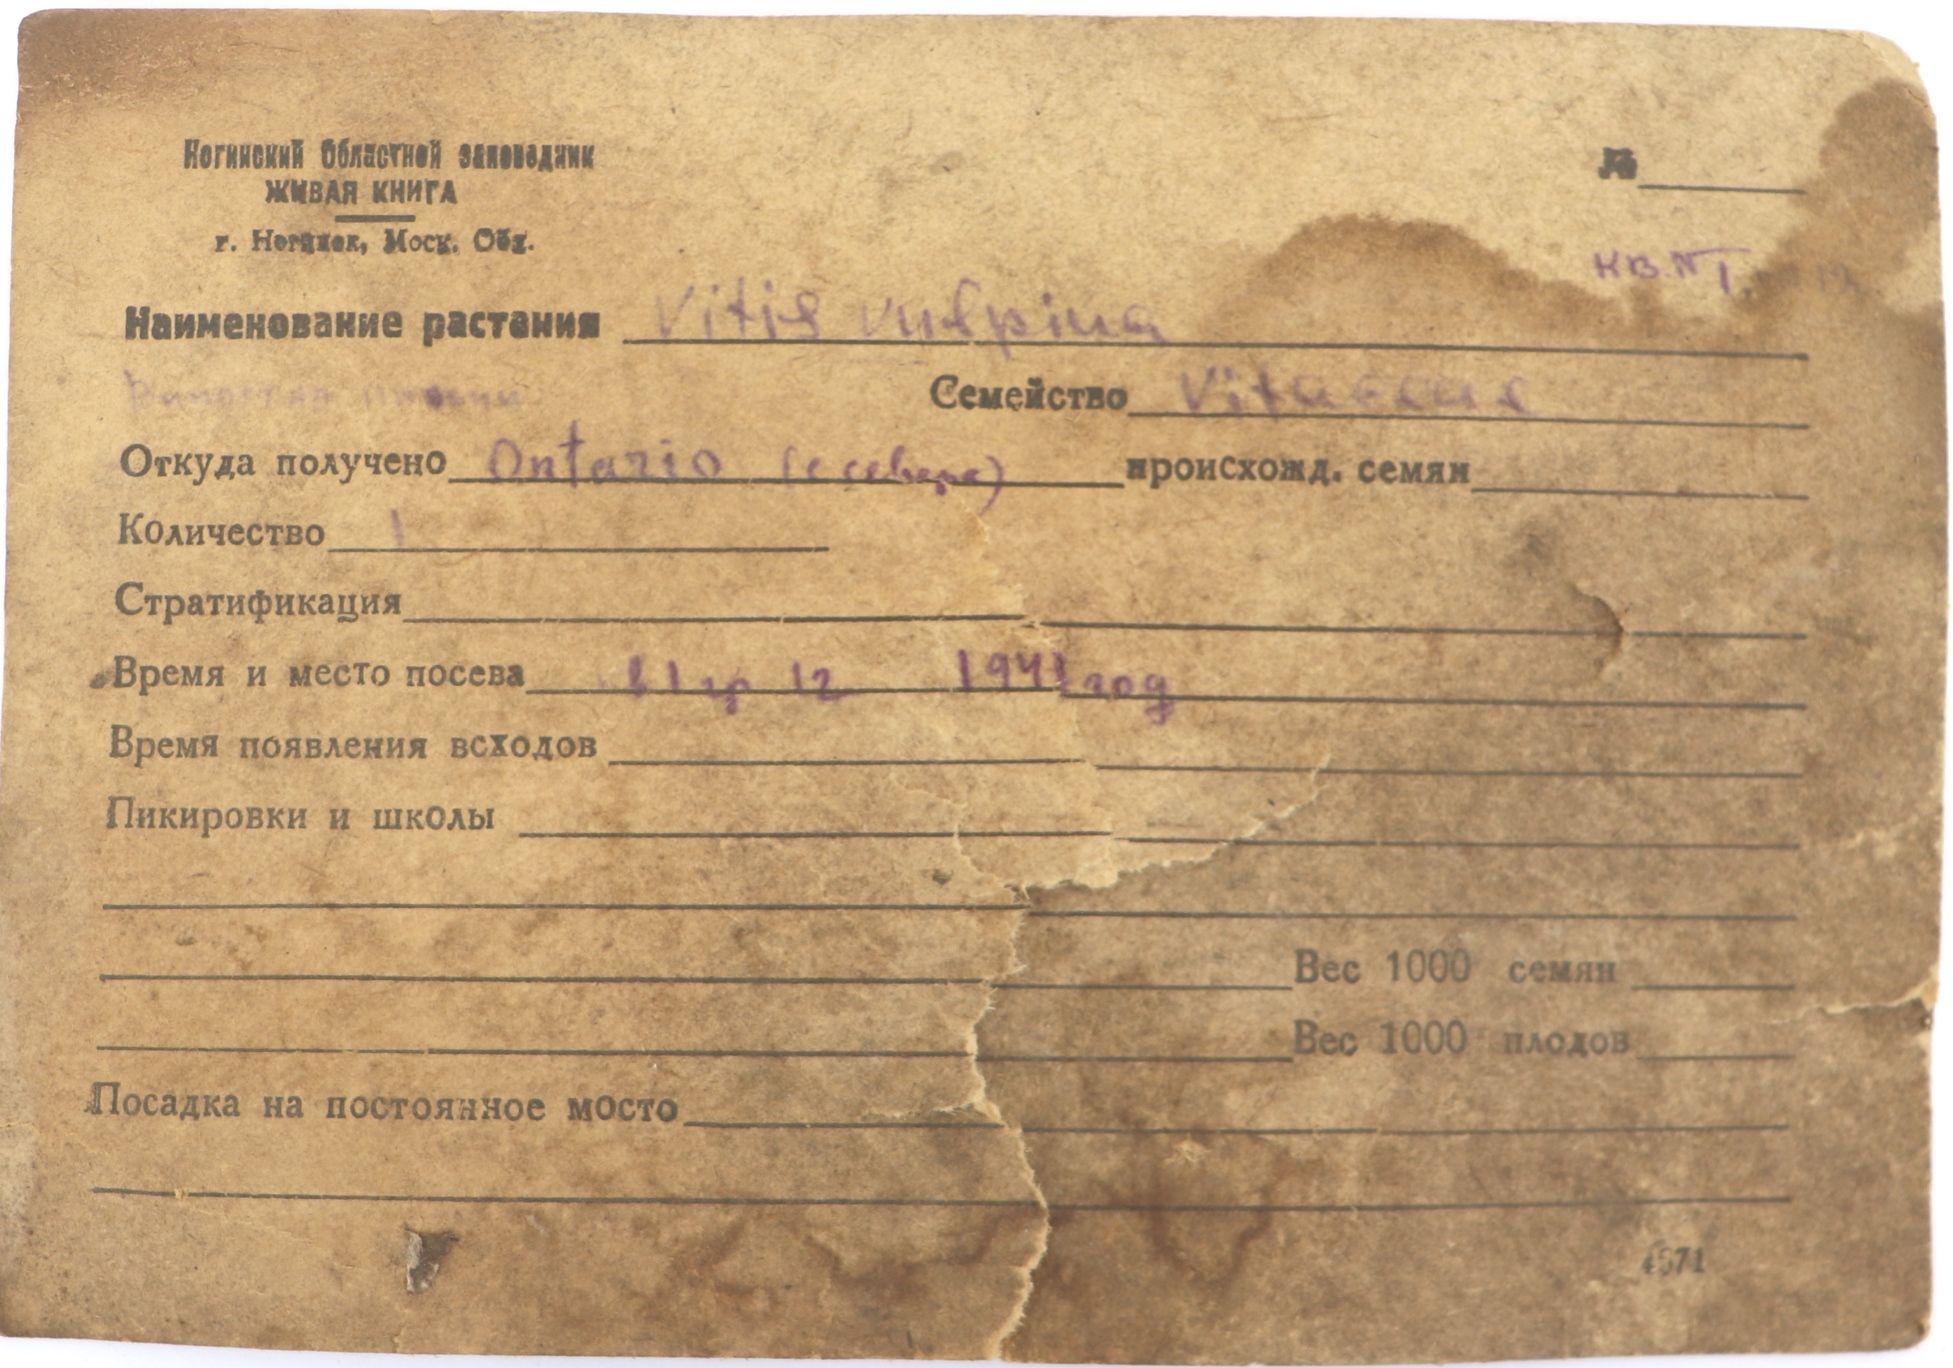 Ногинский Областной заповедник
ЖИВАЯ КНИГА
г. Ногинск, Моск. Обл.
№
кв. № I.
Наименование растания Vitis vulpina
Семейство Vitaceae
Откуда получено Ontario (с севера) происхожд. семян
Количество 1
Стратификация
Время и место посева гр 12 1941 год
Время появления всходов
Пикировки и школы
Вес 1000 семян
Вес 1000 плодов
Посадка на постоянное мосто
4571